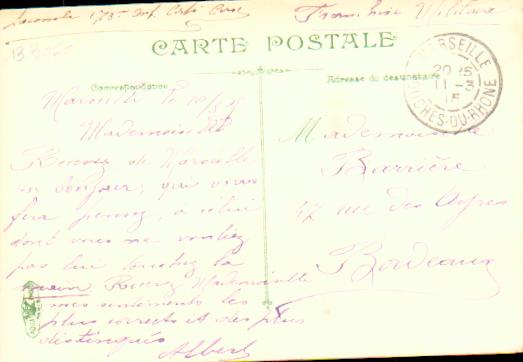 173e Inf.
Franchise Militaire
CARTE POSTALE
Correspondance
Adresse du destinataire
MARSEILLE
20 15
11 -3
15
BOUCHES-DU-RHONE
Marseille le 10/3/15
Mademoiselle
Recevez de Marseille
un bonjour, qui vous
fera penser, a celui
dont vous ne vouliez
pas lui touchez la
main Recevez Mademoiselle
mes sentiments les
plus corrects et des plus
distingués
Albert
Mademoiselle
Barrière
47 rue des Ayres
Bordeaux